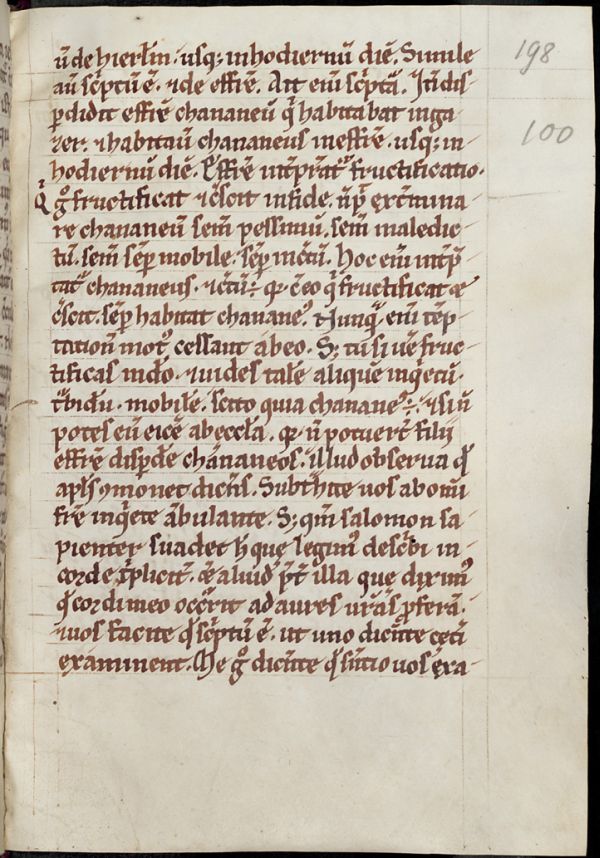 198
100
ūde hierlm̄. usq; inhodiernū diē. Simile
aū sc̄ptū ē. ⁊de effrē. Ait eni͂ sc̄pta͂. Itē dis-
pdidit effrē chananeū q̄ habitabat inga-
zer. ⁊habitau͂ chananeus ineffrē. usq; in-
hodiernū diē. Effrē int͂prat͂ fructificatio.
Q̄ gͦ fructificat ⁊c͂scit infide. n̄ pͭ ext͂mina-
re chananeū sem̄ pessimū, sem̄ maledic-
tū. sem̄ semp̄ mobile. semp̄ inc̄tū. hoc eni͂ int͂p͂-
tat͂ chananeus. ⁊c͂tū÷ qꝛ c͂eo q̄ fructificat ⁊
c͂scit. semp̄ habitat chananeꝰ. Nunqͣ eni͂ tēp-
tationū motꝰ cessant abeo. S; tu si uē fruc-
tificas indo. ⁊uides talē aliquē inq̇etū.
t͂bidū. mobilē. scito quia chananeꝰ÷. ⁊si n̄
potes eū eicē abeccla. qꝛ n̄ potuert͂ filii
effrē dispdē chananeos. illud obserua qd̄
apls ꝯmonet dicens. Subt͂hite uos abomi͂
frē inq̇ete ābulante. S; qm̄ salomon sa-
pienter suadet h̄ que legimꝰ desc͂bi in-
corde t͂plicit͂. ⁊ aliud p͂t illa que diximꝰ
qd̄ cordi meo occ͂rit ad aures ur͂as pferā.
⁊uos facite qd̄ sc̄ptū ē. ut uno dicēte cet͂i
examinent. Me gͦ dicēte qd̄ sentio uos exa-